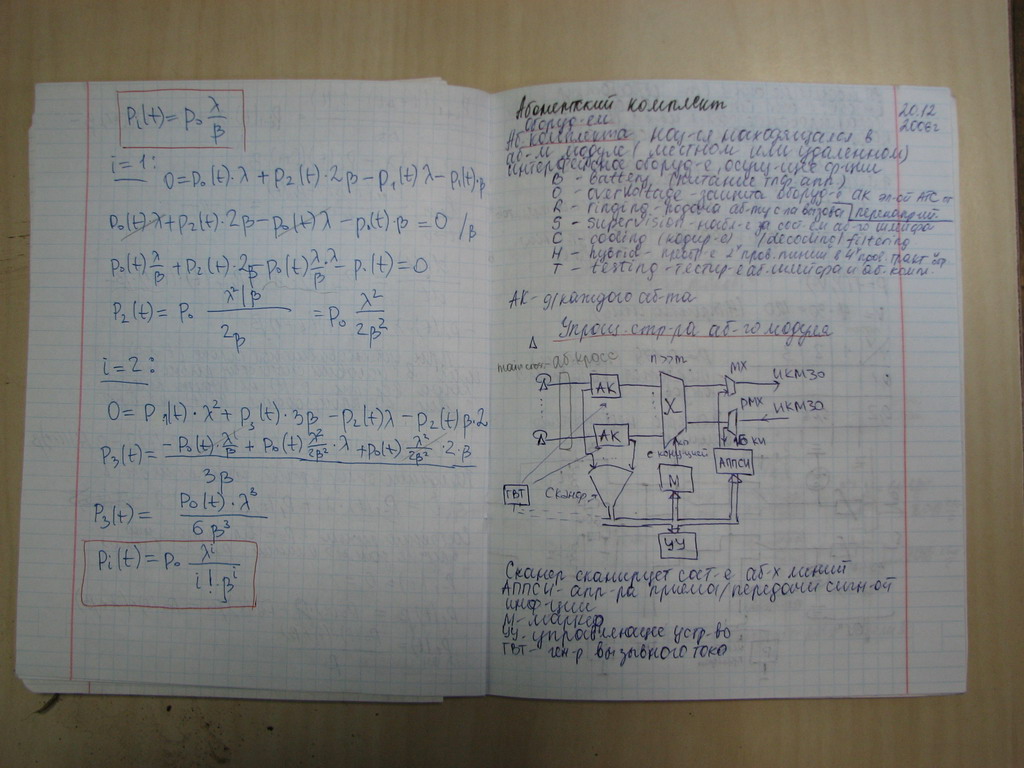 P₁(t) = P₀ λ/β
i=1:
0=P₀(t)·λ + P₂(t)·2β − P₁(t)λ − P₁(t)·β
P₀(t)·λ + P₂(t)·2β − P₀(t)λ − P₁(t)·β = 0 /β
P₀(t) λ/β + P₂(t)·2β − P₀(t) λ·λ/β − P₁(t) = 0
P₂(t) = P₀ λ²/β / 2β = P₀ λ²/2β²
i=2:
0 = P₁(t)·λ² + P₃(t)·3β − P₂(t)λ − P₂(t)β·2
P₃(t) = −P₀(t)·λ²/β + P₀(t) λ²/2β²·λ + P₀(t) λ²/2β²·2·β / 3β
P₃(t) = P₀(t)·λ³ / 6β³
Pᵢ(t) = P₀ λⁱ / i! βⁱ
20.12
2006г
Абонентский комплект
оборуд-ем
Аб. комплекта наз-ся находящегося в
аб-м модуле (местном или удаленном)
интерфейсное оборуд-е, осущ-щее ф-ции
B - battery (питание тлф апп)
O - overvoltage - защита оборуд-я АК эл-ой АТС от перенапряж
R - ringing - подача аб-ту с-ла вызова
S - supervision - набл-е за сост-ем аб-го шлейфа
C - coding (кодир-е) /decoding/
H - hybrid - преобр-е 2ˣ пров. линии в 4ˣ пров. тракт
T - testing - тестир-е аб. шлейфа и аб. компл.
АК - д/каждого аб-та
Упрощ. стр-ра аб-го модуля
аб. кросс
АК
АК
MX
ИКМ30
ИКМ30
КИ
М
АППСИ
ГВТ
Сканер
УУ
Сканер сканирует сост-е аб-х линий
АППСИ - апп-ра приема/передачи сигн-ой
инф-ции
М - маркер
УУ - управляющее устр-во
ГВТ - ген-р вызывного тока